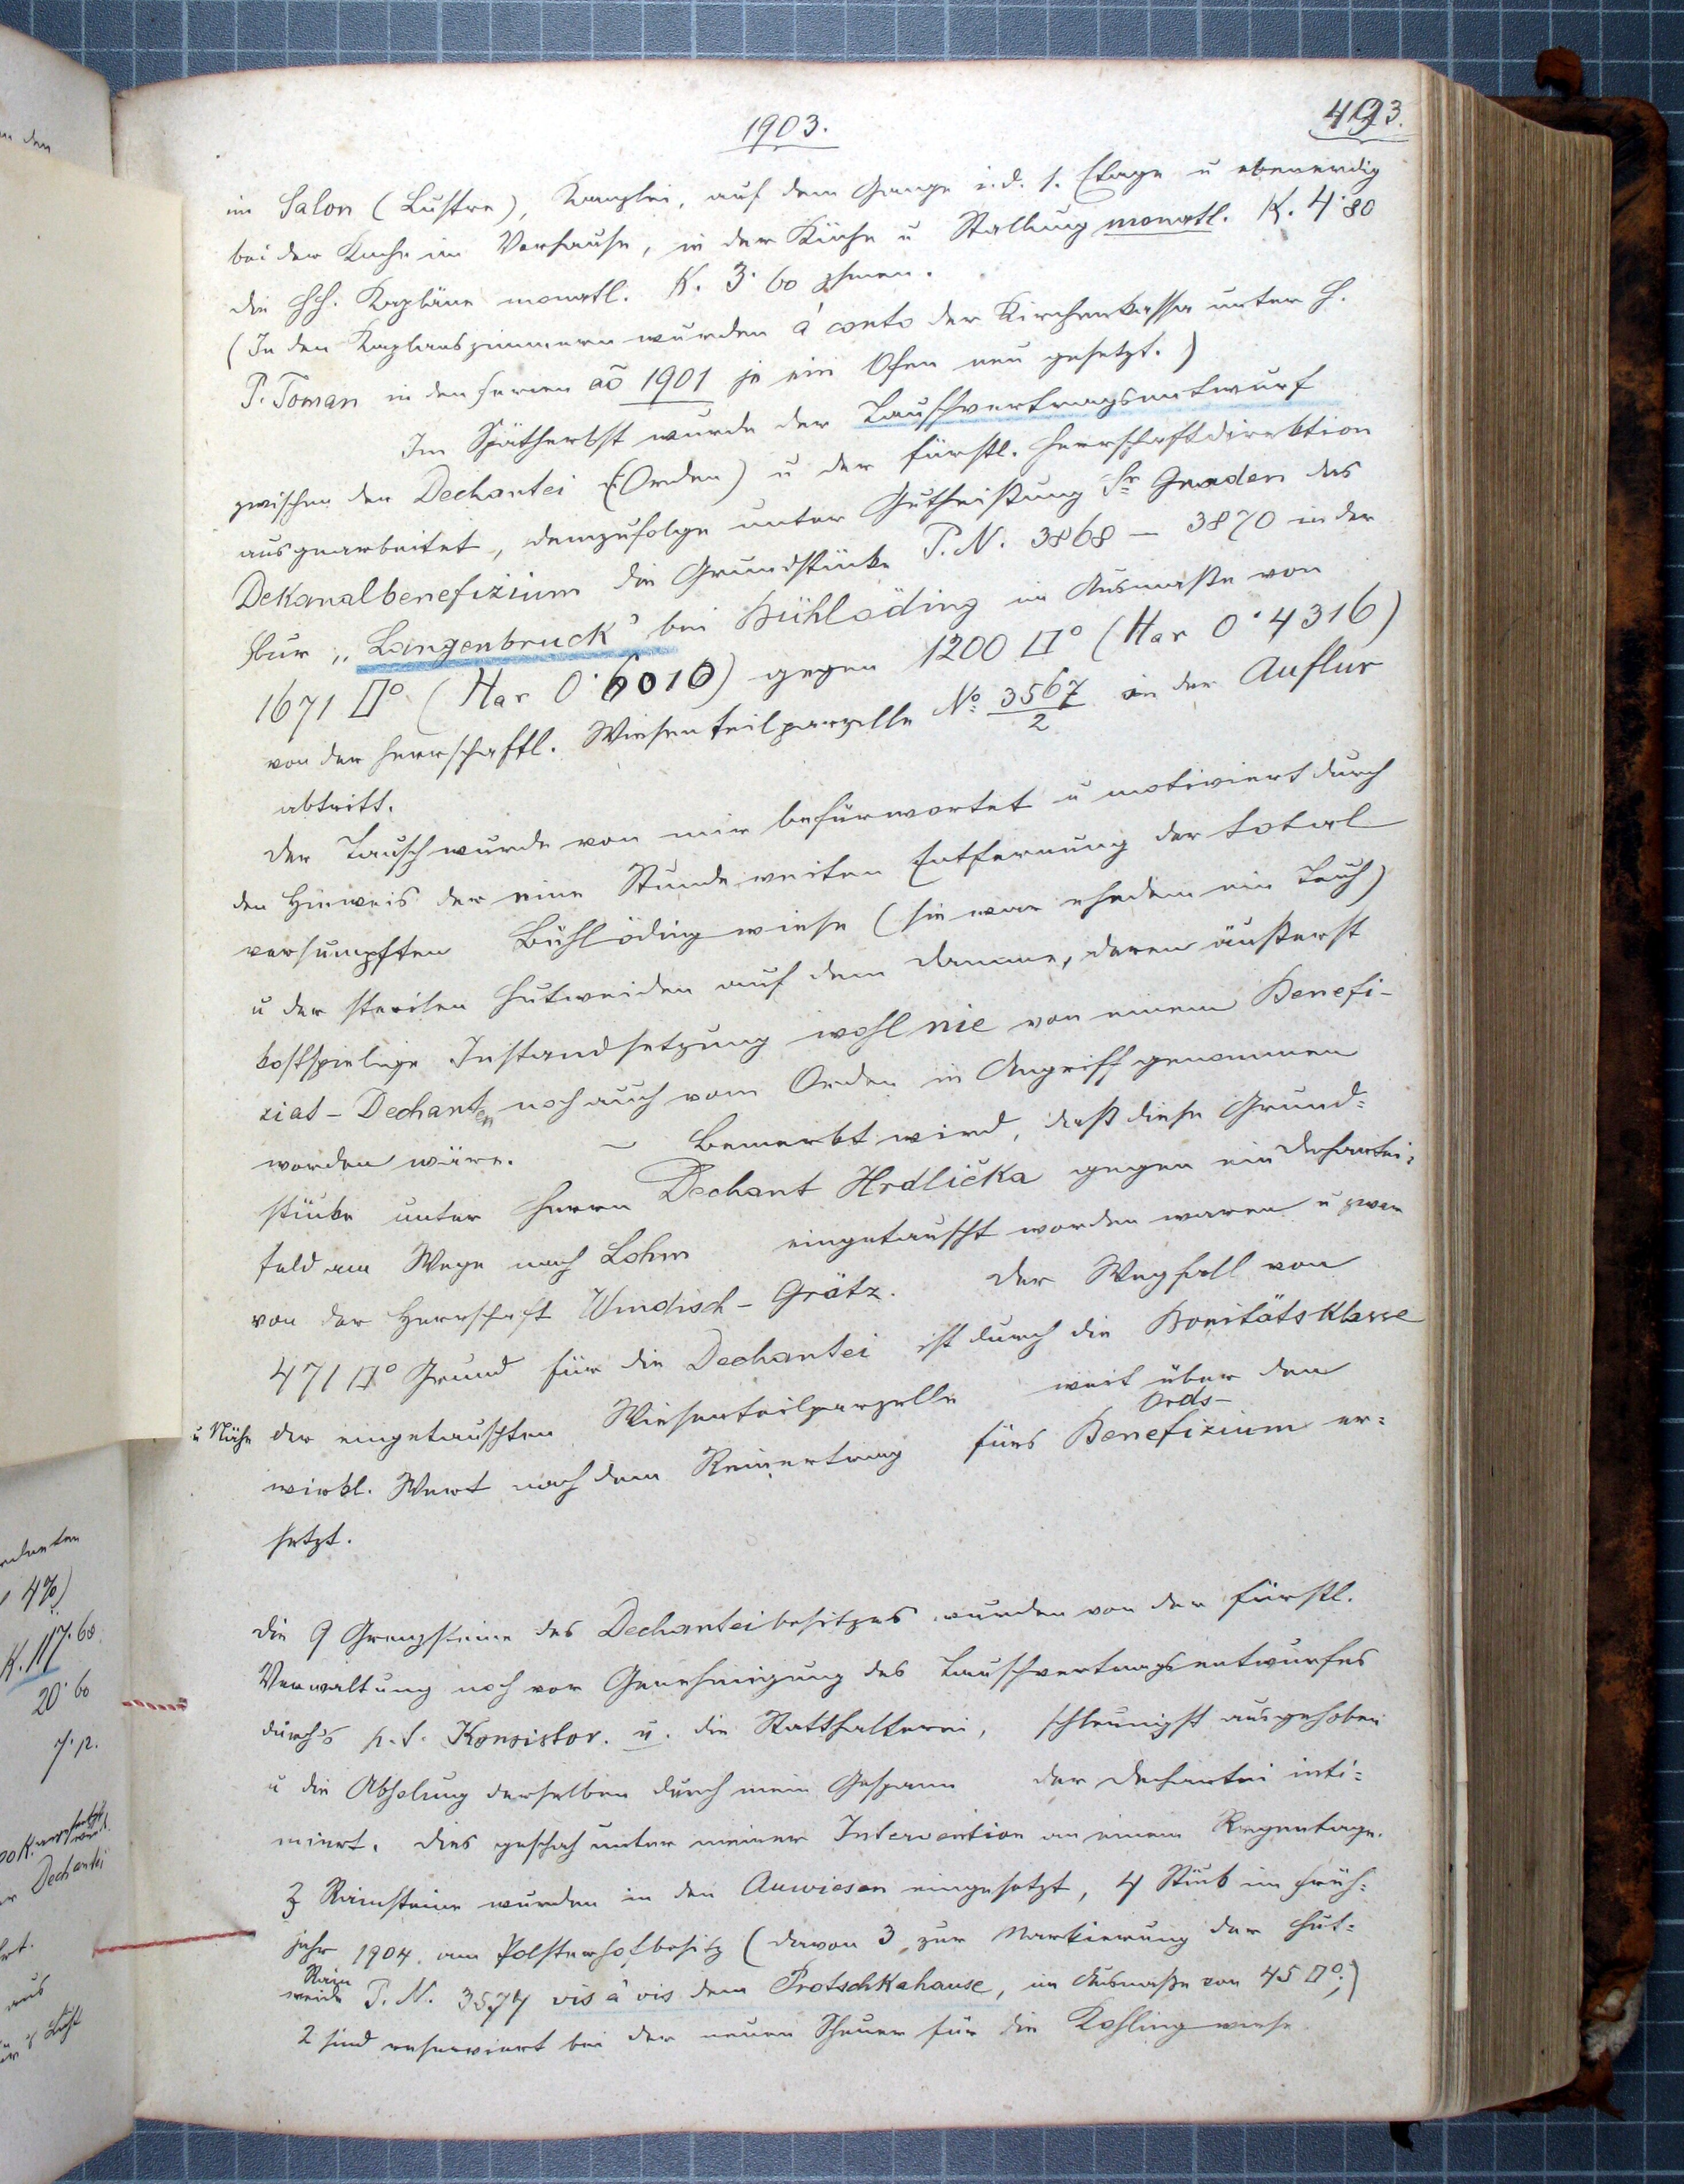 1903.
493.
im Salon (Lustre), Kanzlei, auf dem Gange i. d. 1. Etage u ebenerdig
bei der Küche im Vorhause, in der Küche u Stallung monatl. K. 4·80
die HH. Kapläne monatl. K. 3·60
(In den Kaplanszimmern wurden á conto der Kirchenkasse unter H.
P. Toman in den Ferien aō 1901 je ein Ofen neu gesetzt.)
Im Spätherbst wurde der Tauschvertragsentwurf
zwischen der Dechantei (:Orden) u der fürstl. Herrschaftdirektion
ausgearbeitet, demzufolge unter Gutheißung Sr Gnaden das
Dekanalbenefizium die Grundstücke P. N. 3868 – 3870 in der
Flur „Langenbruck" bei Bühlöding im Ausmaße von
1671 □° (Har 0·6016) gegen 1200 □° (Har 0·4316)
von der herrschaftl. Wiesenteilparzelle No 3567/2 in der Auflur
abtritt.
Der Tausch wurde von mir befürwortet u motiviert durch
den Hinweis der eine Stunde weiten Entfernung der total
versumpften Bühlödingwiese (sie war ehedem ein Teich)
u der sterilen Hutweiden auf dem Damme, deren äußerst
kostspielige Instandsetzung wohl nie von einem Benefi-
ziat-Dechanten noch auch vom Orden in Angriff genommen
worden wäre. – Bemerkt wird, daß diese Grund=
stücke unter Herrn Dechant Hrdlička gegen ein Dechantei=
feld am Wege nach Lohm eingetauscht worden waren u zwar
von der Herrschaft Windisch-Grätz. Der Wegfall von
471 □° Grund für die Dechantei ist durch die Bonitätsklasse
u Nähe der eingetauschten Wiesenteilparzelle weit über den
wirkl. Wert nach dem Reinertrag fürs Ords- Benefizium er=
setzt.
Die 9 Grenzsteine des Dechanteibesitzes wurden von der fürstl.
Verwaltung noch vor Genehmigung des Tauschvertragsentwurfes
durch's p. t. Konsistor. u. die Statthalterei, schleunigst ausgehoben
u die Abholung derselben durch mein Gespann der Dechantei inti=
miert. Dies geschah unter meiner Intervention an einem Regentage.
3 Rainsteine wurden in den Auwiesen eingesetzt, 4 Stück im Früh=
jahr 1904 am Polsterhofbesitz (davon 3 zur Markierung der Hut=
weide Rain P. N. 3574 vis á vis dem Protschkahause, im Ausmaße von 45 □°;)
2 sind reserviert bei der neuen Scheuer für die Kohlingwiese
4%)
K. 117·60
20·60
Dechantei
aus